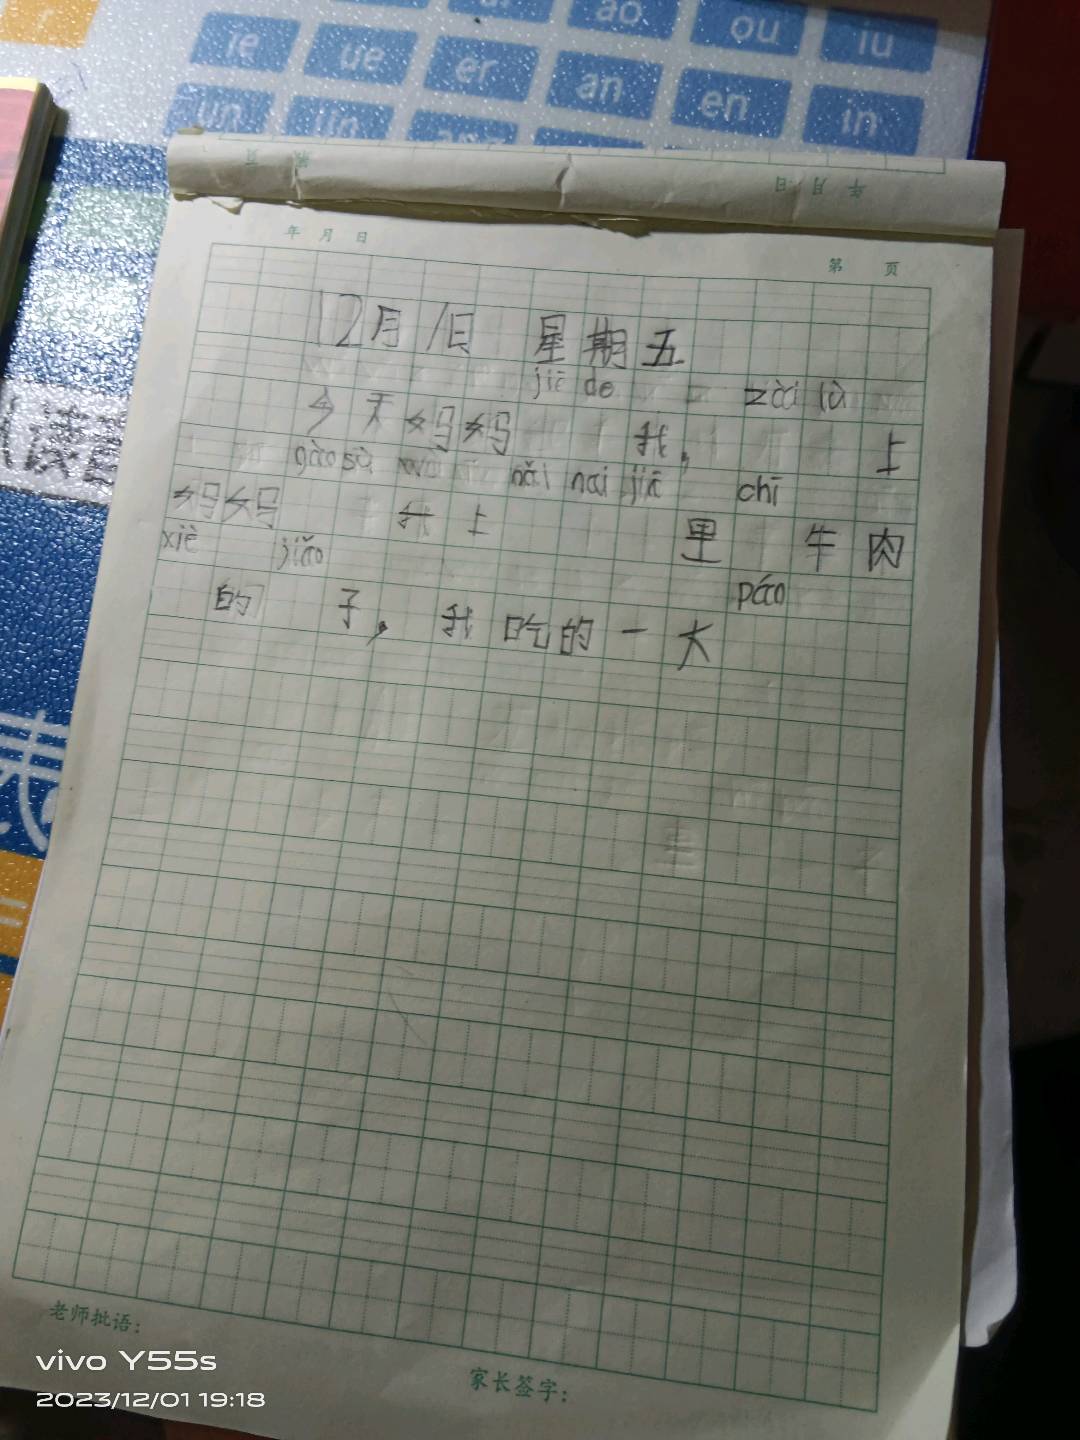 ao ou iu
ie ue er an en in
un
年 月 日
第 页
12月1日 星期五
jiē de zài lù
今天妈妈 我, 上
gào sù nǎi nai jiā chī
妈妈 我上 里 牛肉
xiè jiǎo páo
的 子, 我吃的一大
老师批语:
家长签字:
vivo Y55s
2023/12/01 19:18